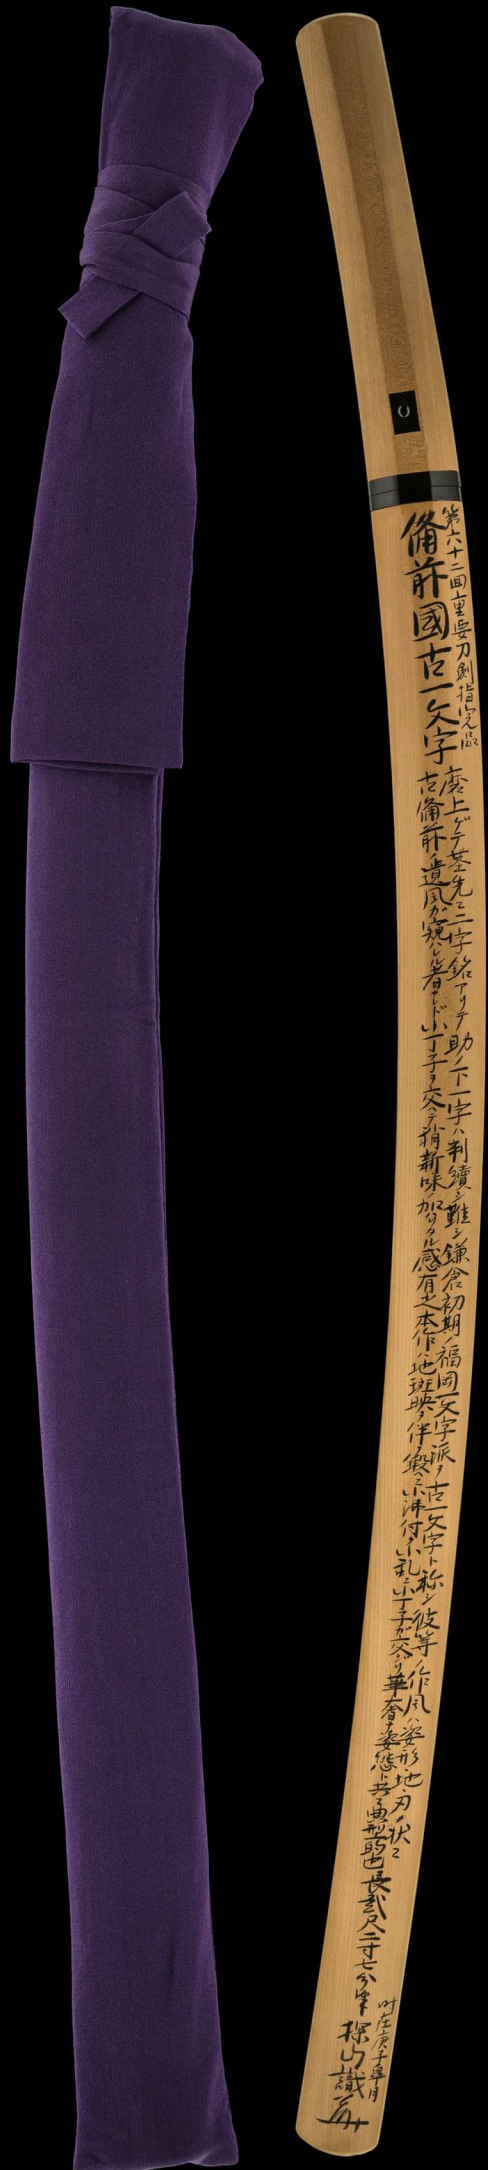 第六十二回重要刀剣指定品
備前國古一文字
磨上ゲテ茎先ニ二字銘アリテ助ノ下一字ハ判續シ難シ鎌倉初期ノ福岡一文字派ヲ古一文字ト称シ彼等ノ作風ハ姿形地刃ノ状ニ
古備前ノ遺風ガ窺ハレル者ナレド小丁子ヲ交ヘテ稍新味ノ加ハリタル感有之本作ハ地斑映ヲ伴フ鍛ニ小沸付ク小乱ニ小丁子ガ交リ華奢ナ姿態ト共ニ典型的也
長貳尺二寸七分半
時在庚子皐月
探山識